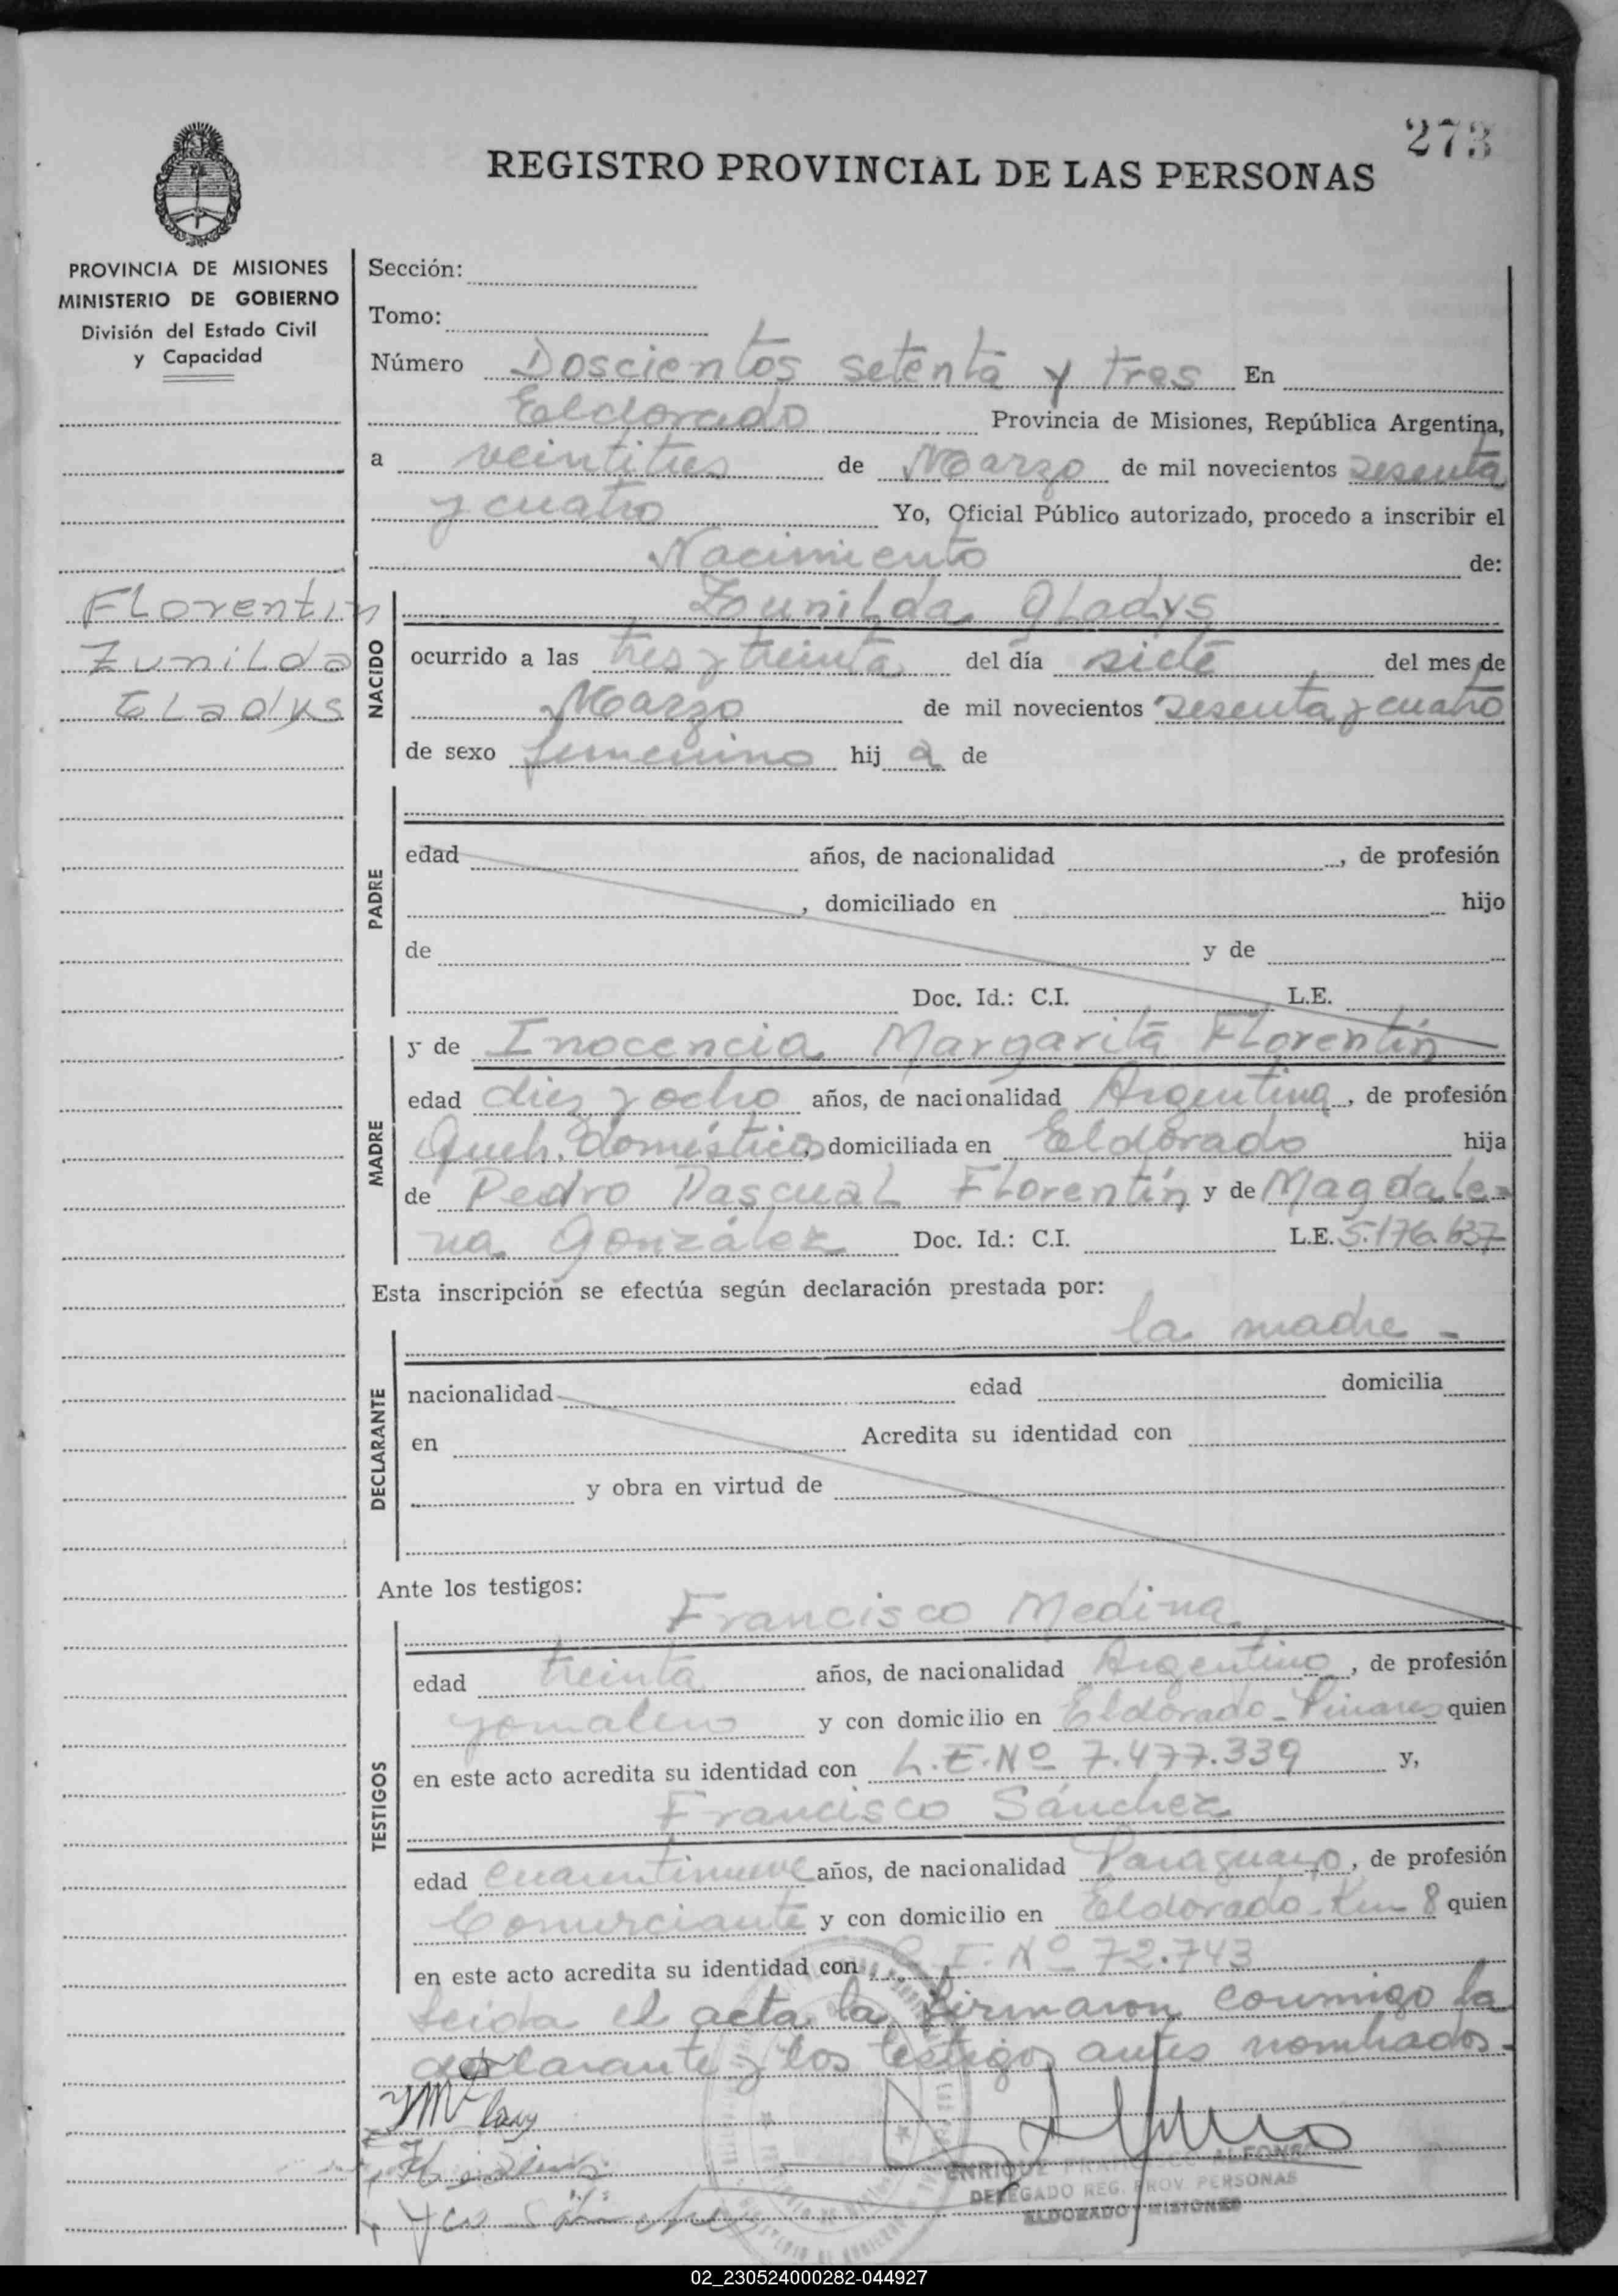 273
REGISTRO PROVINCIAL DE LAS PERSONAS
PROVINCIA DE MISIONES
MINISTERIO DE GOBIERNO
División del Estado Civil
y Capacidad
Sección:
Tomo:
Número Doscientos setenta y tres En
Eldorado Provincia de Misiones, República Argentina,
a veintitres de Marzo de mil novecientos sesenta
y cuatro Yo, Oficial Público autorizado, procedo a inscribir el
Nacimiento de:
Florentin
Zunilda
Gladys
NACIDO
Zunilda Gladys
ocurrido a las tres y treinta del día siete del mes de
Marzo de mil novecientos sesenta y cuatro
de sexo femenino hij a de
PADRE
edad años, de nacionalidad , de profesión
, domiciliado en hijo
de y de
Doc. Id.: C.I. L.E.
MADRE
y de Inocencia Margarita Florentín
edad diez y ocho años, de nacionalidad Argentina, de profesión
Queh. domésticos domiciliada en Eldorado hija
de Pedro Pascual Florentín y de Magdale-
na González Doc. Id.: C.I. L.E. 5.176.637
Esta inscripción se efectúa según declaración prestada por:
la madre -
DECLARANTE
nacionalidad edad domicilia
en Acredita su identidad con
y obra en virtud de
Ante los testigos:
TESTIGOS
Francisco Medina
edad treinta años, de nacionalidad Argentino, de profesión
jornalero y con domicilio en Eldorado - Pinares quien
en este acto acredita su identidad con L.E. Nº 7.477.339 y,
Francisco Sánchez
edad cuarentinueve años, de nacionalidad Paraguayo, de profesión
Comerciante y con domicilio en Eldorado - Km 8 quien
en este acto acredita su identidad con Nº 72.743
Leida el acta la firmaron conmigo la
declarante y los testigos antes nombrados.-
ENRIQUE FRANCISCO ALFONSO
DELEGADO REG. PROV. PERSONAS
ELDORADO MISIONES
02_230524000282-044927